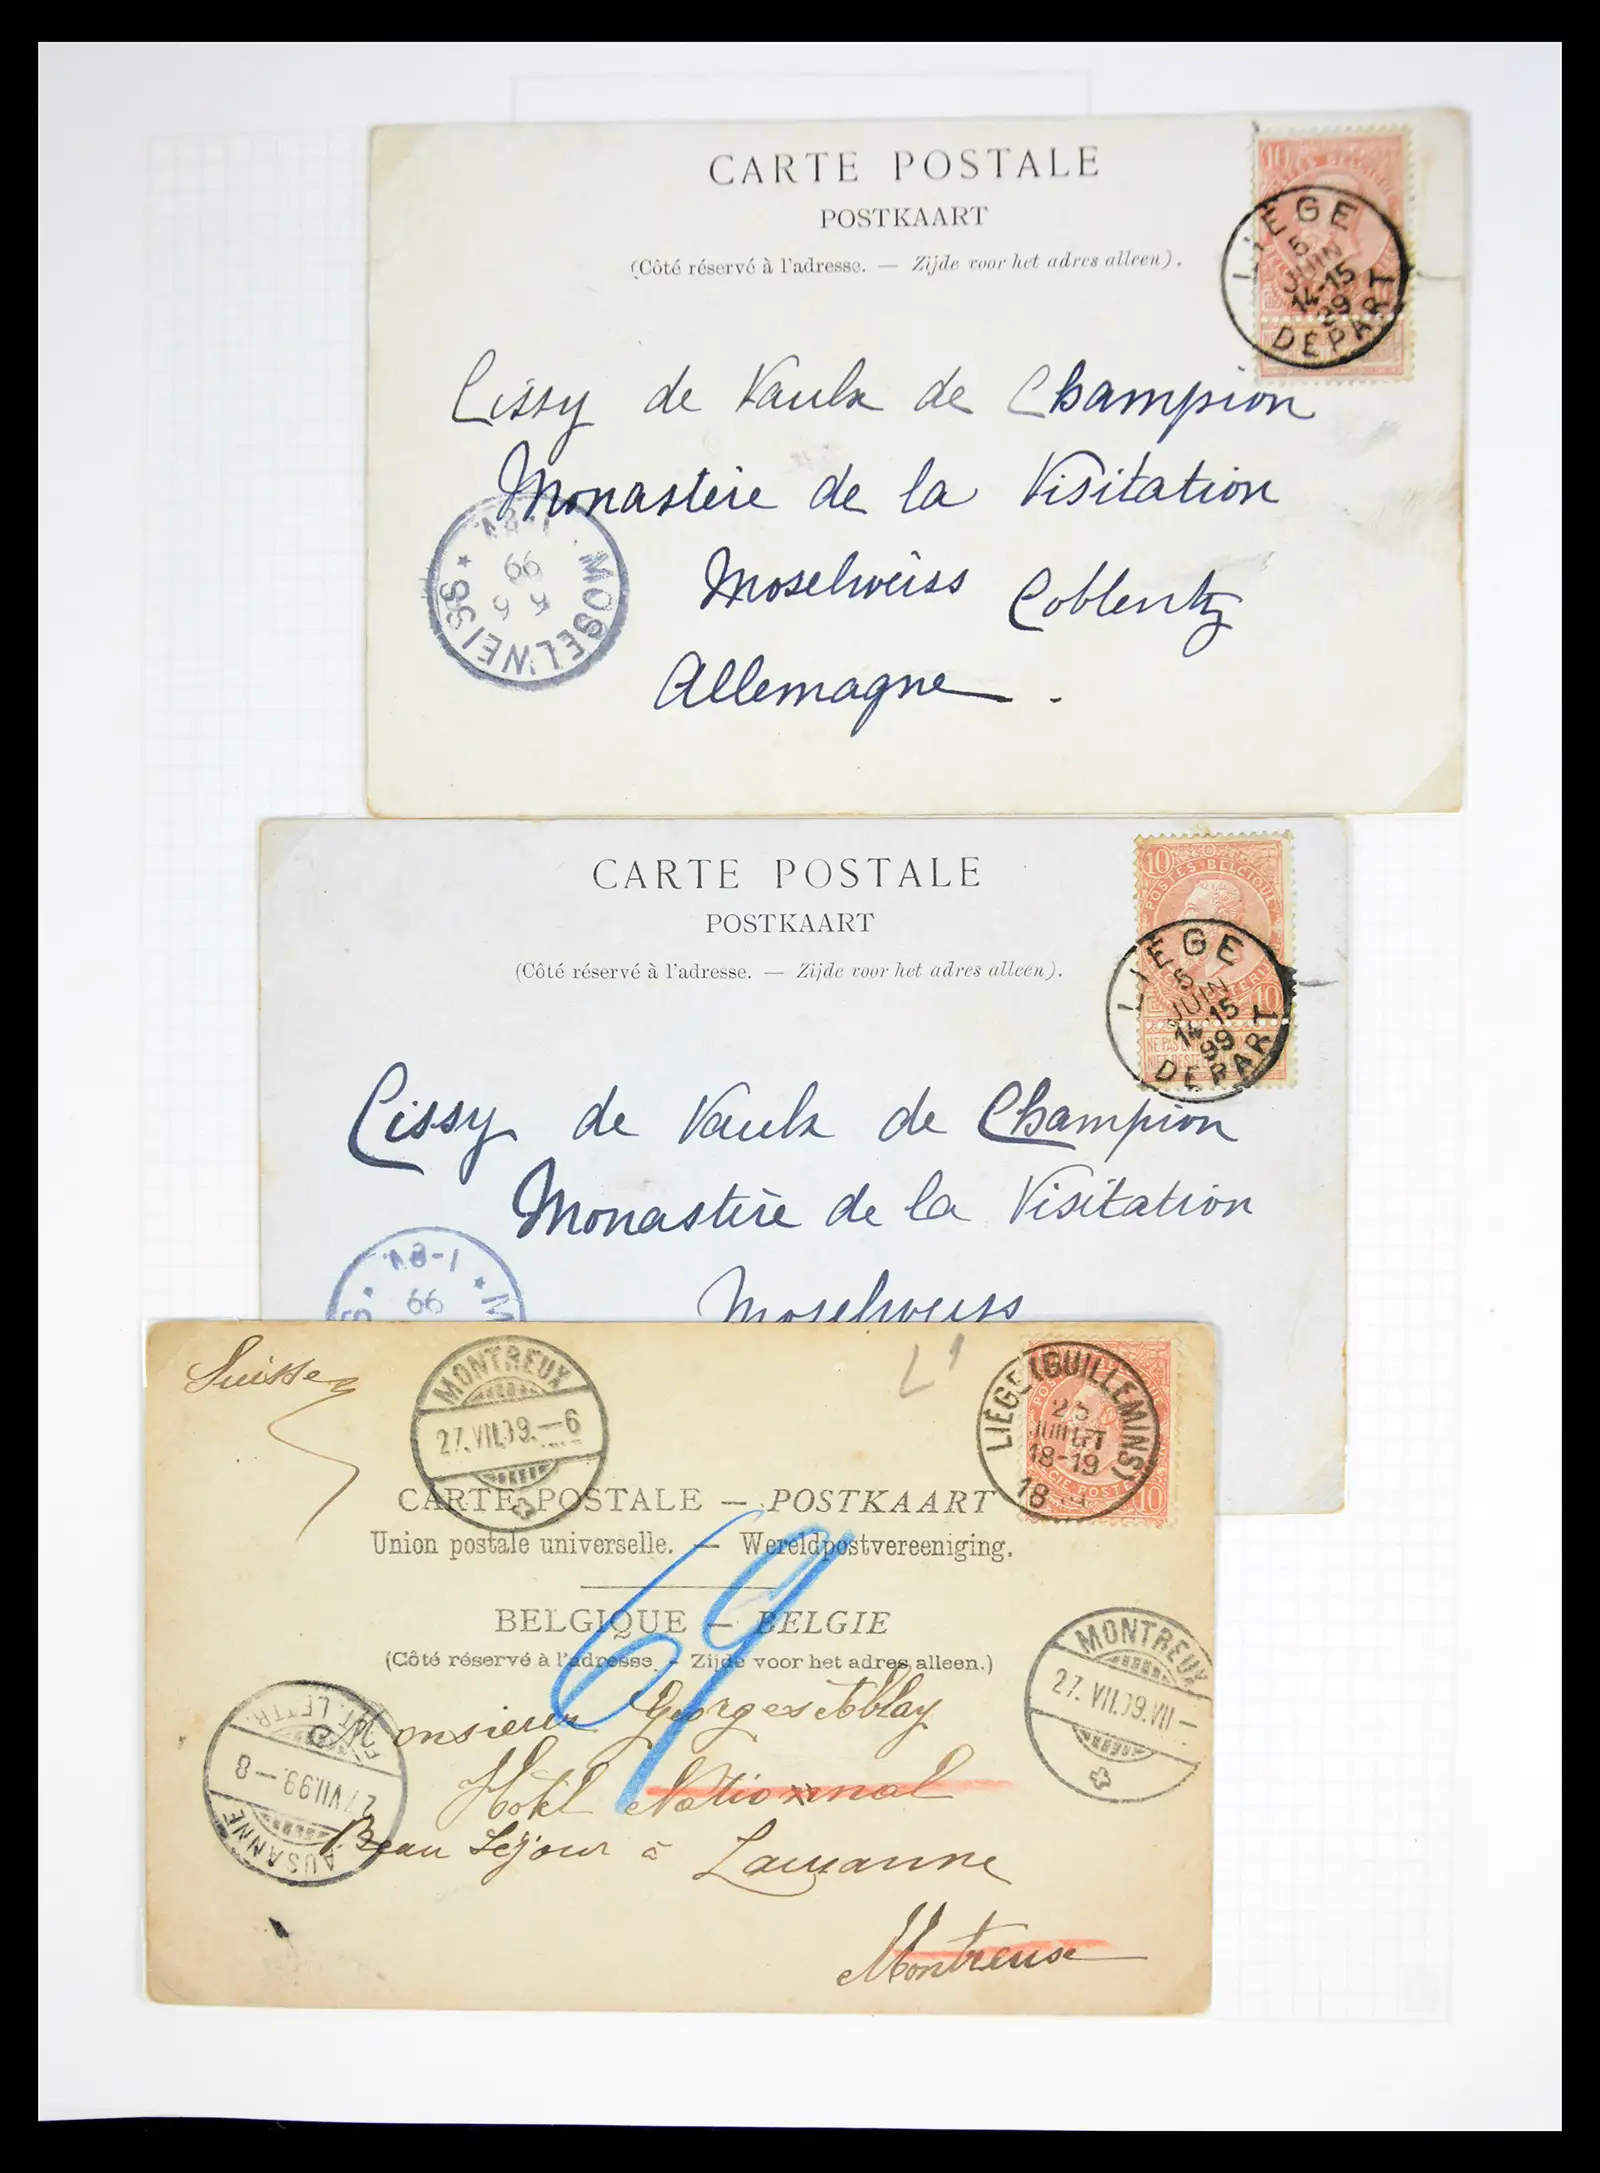 CARTE POSTALE
POSTKAART
(Côté réservé à l'adresse. — Zijde voor het adres alleen).
10
LIÈGE
5
JUIN
14-15
99
DEPART
Lissy de Vaulx de Champion
Monastère de la Visitation
Moselweiss Coblentz
Allemagne.
MOSELWEISS
5 6
99
CARTE POSTALE
POSTKAART
(Côté réservé à l'adresse. — Zijde voor het adres alleen).
10
POSTES BELGIQUE
10
LIÈGE
5
JUIN
14-15
99
DEPART
Lissy de Vaulx de Champion
Monastère de la Visitation
Moselweiss
99
Suisse
MONTREUX
27.VII.99.—6
LIÉGE (GUILLEMINS)
25
JUILLET
18-19
10
CARTE POSTALE — POSTKAART
Union postale universelle. — Wereldpostvereeniging.
BELGIQUE — BELGIE
(Côté réservé à l'adresse. - Zijde voor het adres alleen.)
69
MONTREUX
27.VII.99.VII—
Monsieur Georges Ablay
Hôtel National
Beau Séjour à Lausanne
Montreux
LAUSANNE
27.VII.99.—8
LETTR.